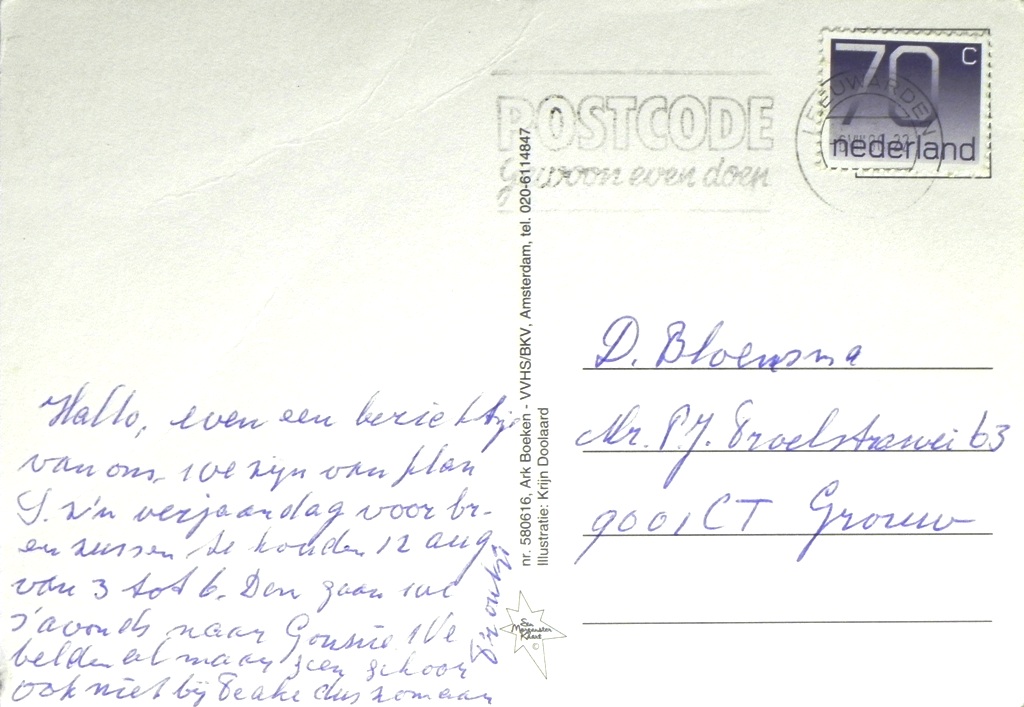 POSTCODE
gewoon even doen
LEEUWARDEN
70 c
nederland
Hallo, even een berichtje
van ons. we zijn van plan
S. z'n verjaardag voor br-
en zussen te houden 12 aug.
van 3 tot 6. Den gaan we
s'avonds naar
belden al maar geen gehoor
ook niet bij Teake dus zomaar
nr. 580616, Ark Boeken - VVHS/BKV, Amsterdam, tel. 020-6114847
Illustratie: Krijn Doolaard
Een
Morgenster
Kaart
©
D. Bloemsma
Mr. P.J. Troelstrawei 63
9001 CT Grouw